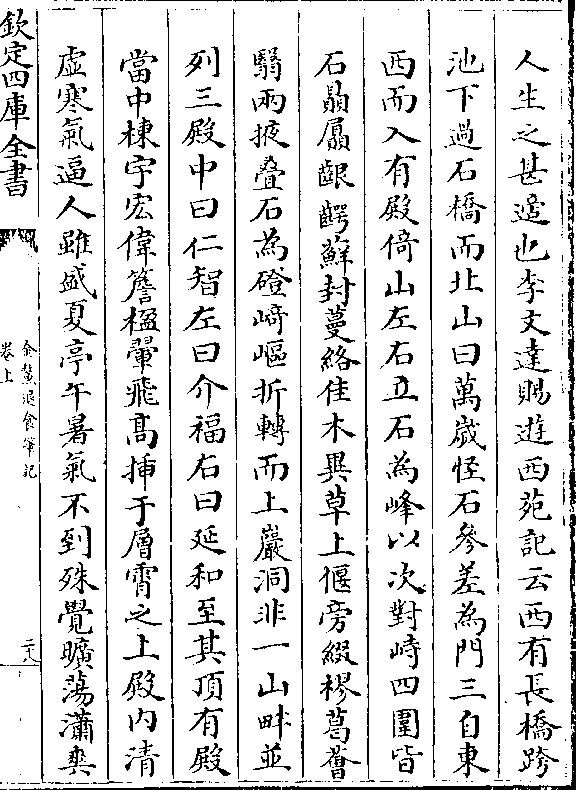 人生之甚適也李文達賜遊西苑記云西有長橋跨
池下過石橋而北山曰萬歲怪石參差為門三自東
西而入有殿倚山左右立石為峰以次對峙四圍皆
石贔屭齦齶蘚封蔓絡佳木異草上偃旁綴樛葛薈
翳兩掖疊石為磴崎嶇折轉而上巖洞非一山畔並
列三殿中曰仁智左曰介福右曰延和至其頂有殿
當中棟宇宏偉簷楹翬飛髙挿于層霄之上殿内清
虛寒氣逼人雖盛夏亭午暑氣不到殊覺曠蕩瀟爽
欽定四庫全書
金鰲退食筆記
卷上
二八